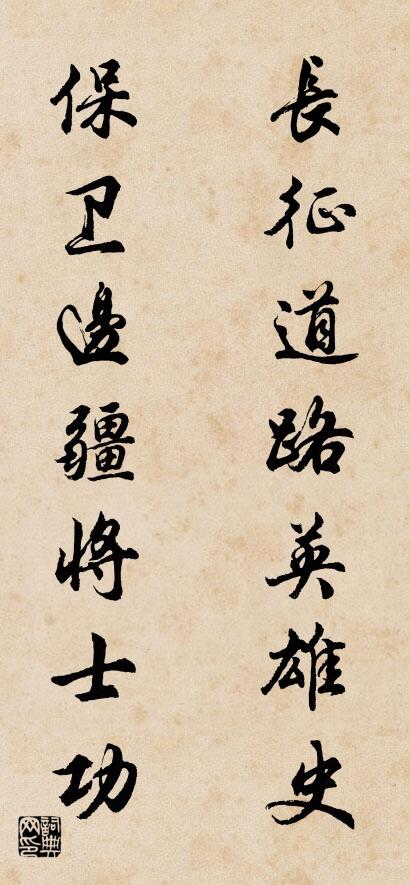 長征道路英雄史
保卫邊疆將士功
詞典网印